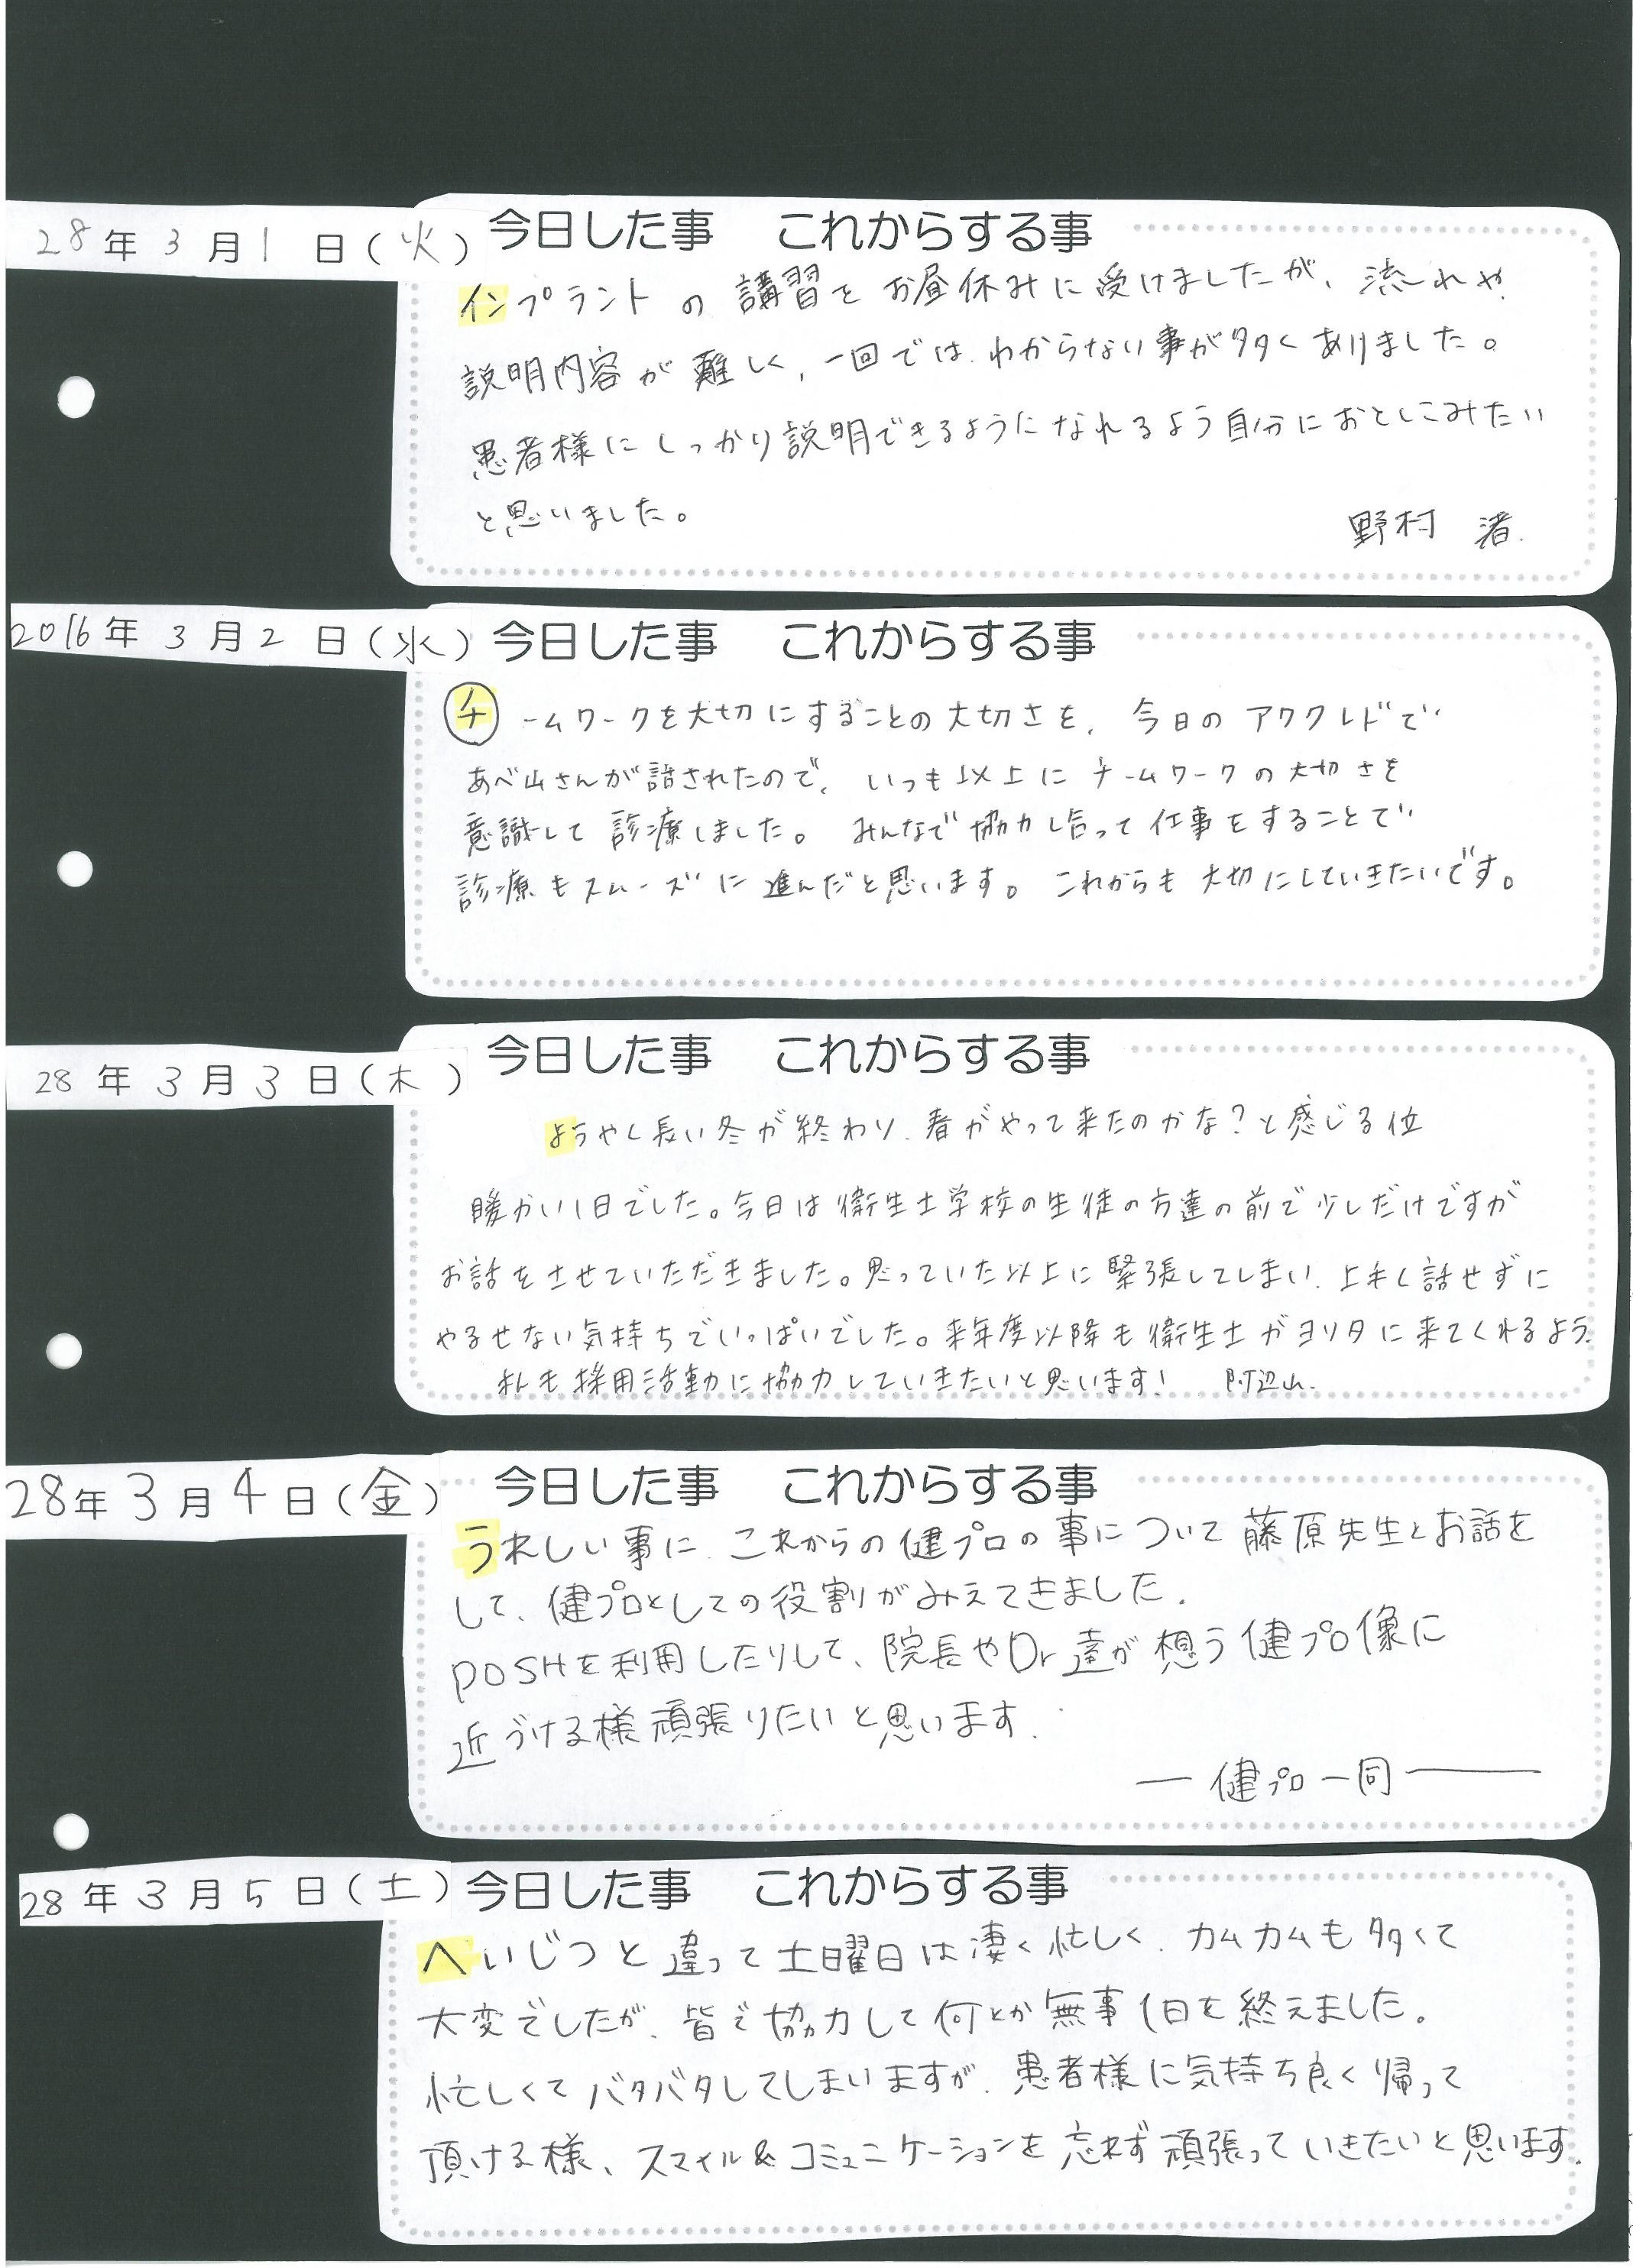 28年3月1日(火) 今日した事 これからする事
インプラントの講習をお昼休みに受けましたが、流れや
説明内容が難しく、一回では、わからない事が多くありました。
患者様にしっかり説明できるようになれるよう自分におとしこみたい
と思いました。
野村 渚.
2016年3月2日(水) 今日した事 これからする事
チームワークを大切にすることの大切さを、今日のアククレドで
あべ山さんが話されたので、いつも以上にチームワークの大切さを
意識して診療しました。みんなで協力し合って仕事をすることで
診療もスムーズに進んだと思います。これからも大切にしていきたいです。
28年3月3日(木) 今日した事 これからする事
ようやく長い冬が終わり、春がやって来たのかな?と感じる位
暖かい1日でした。今日は衛生士学校の生徒の方達の前で少しだけですが
お話をさせていただきました。思っていた以上に緊張してしまい、上手く話せずに
やるせない気持ちでいっぱいでした。来年度以降も衛生士がヨリタに来てくれるよう、
私も採用活動に協力していきたいと思います! 阿辺山.
28年3月4日(金) 今日した事 これからする事
うれしい事に、これからの健プロの事について藤原先生とお話を
して、健プロとしての役割がみえてきました.
POSHを利用したりして、院長やDr達が想う健プロ像に
近づける様頑張りたいと思います.
― 健プロ一同 ―
28年3月5日(土) 今日した事 これからする事
へいじつと違って土曜日は凄く忙しく、カムカムも多くて
大変でしたが、皆で協力して何とか無事1日を終えました。
忙しくてバタバタしてしまいますが、患者様に気持ち良く帰って
頂ける様、スマイル&コミュニケーションを忘れず頑張っていきたいと思います.